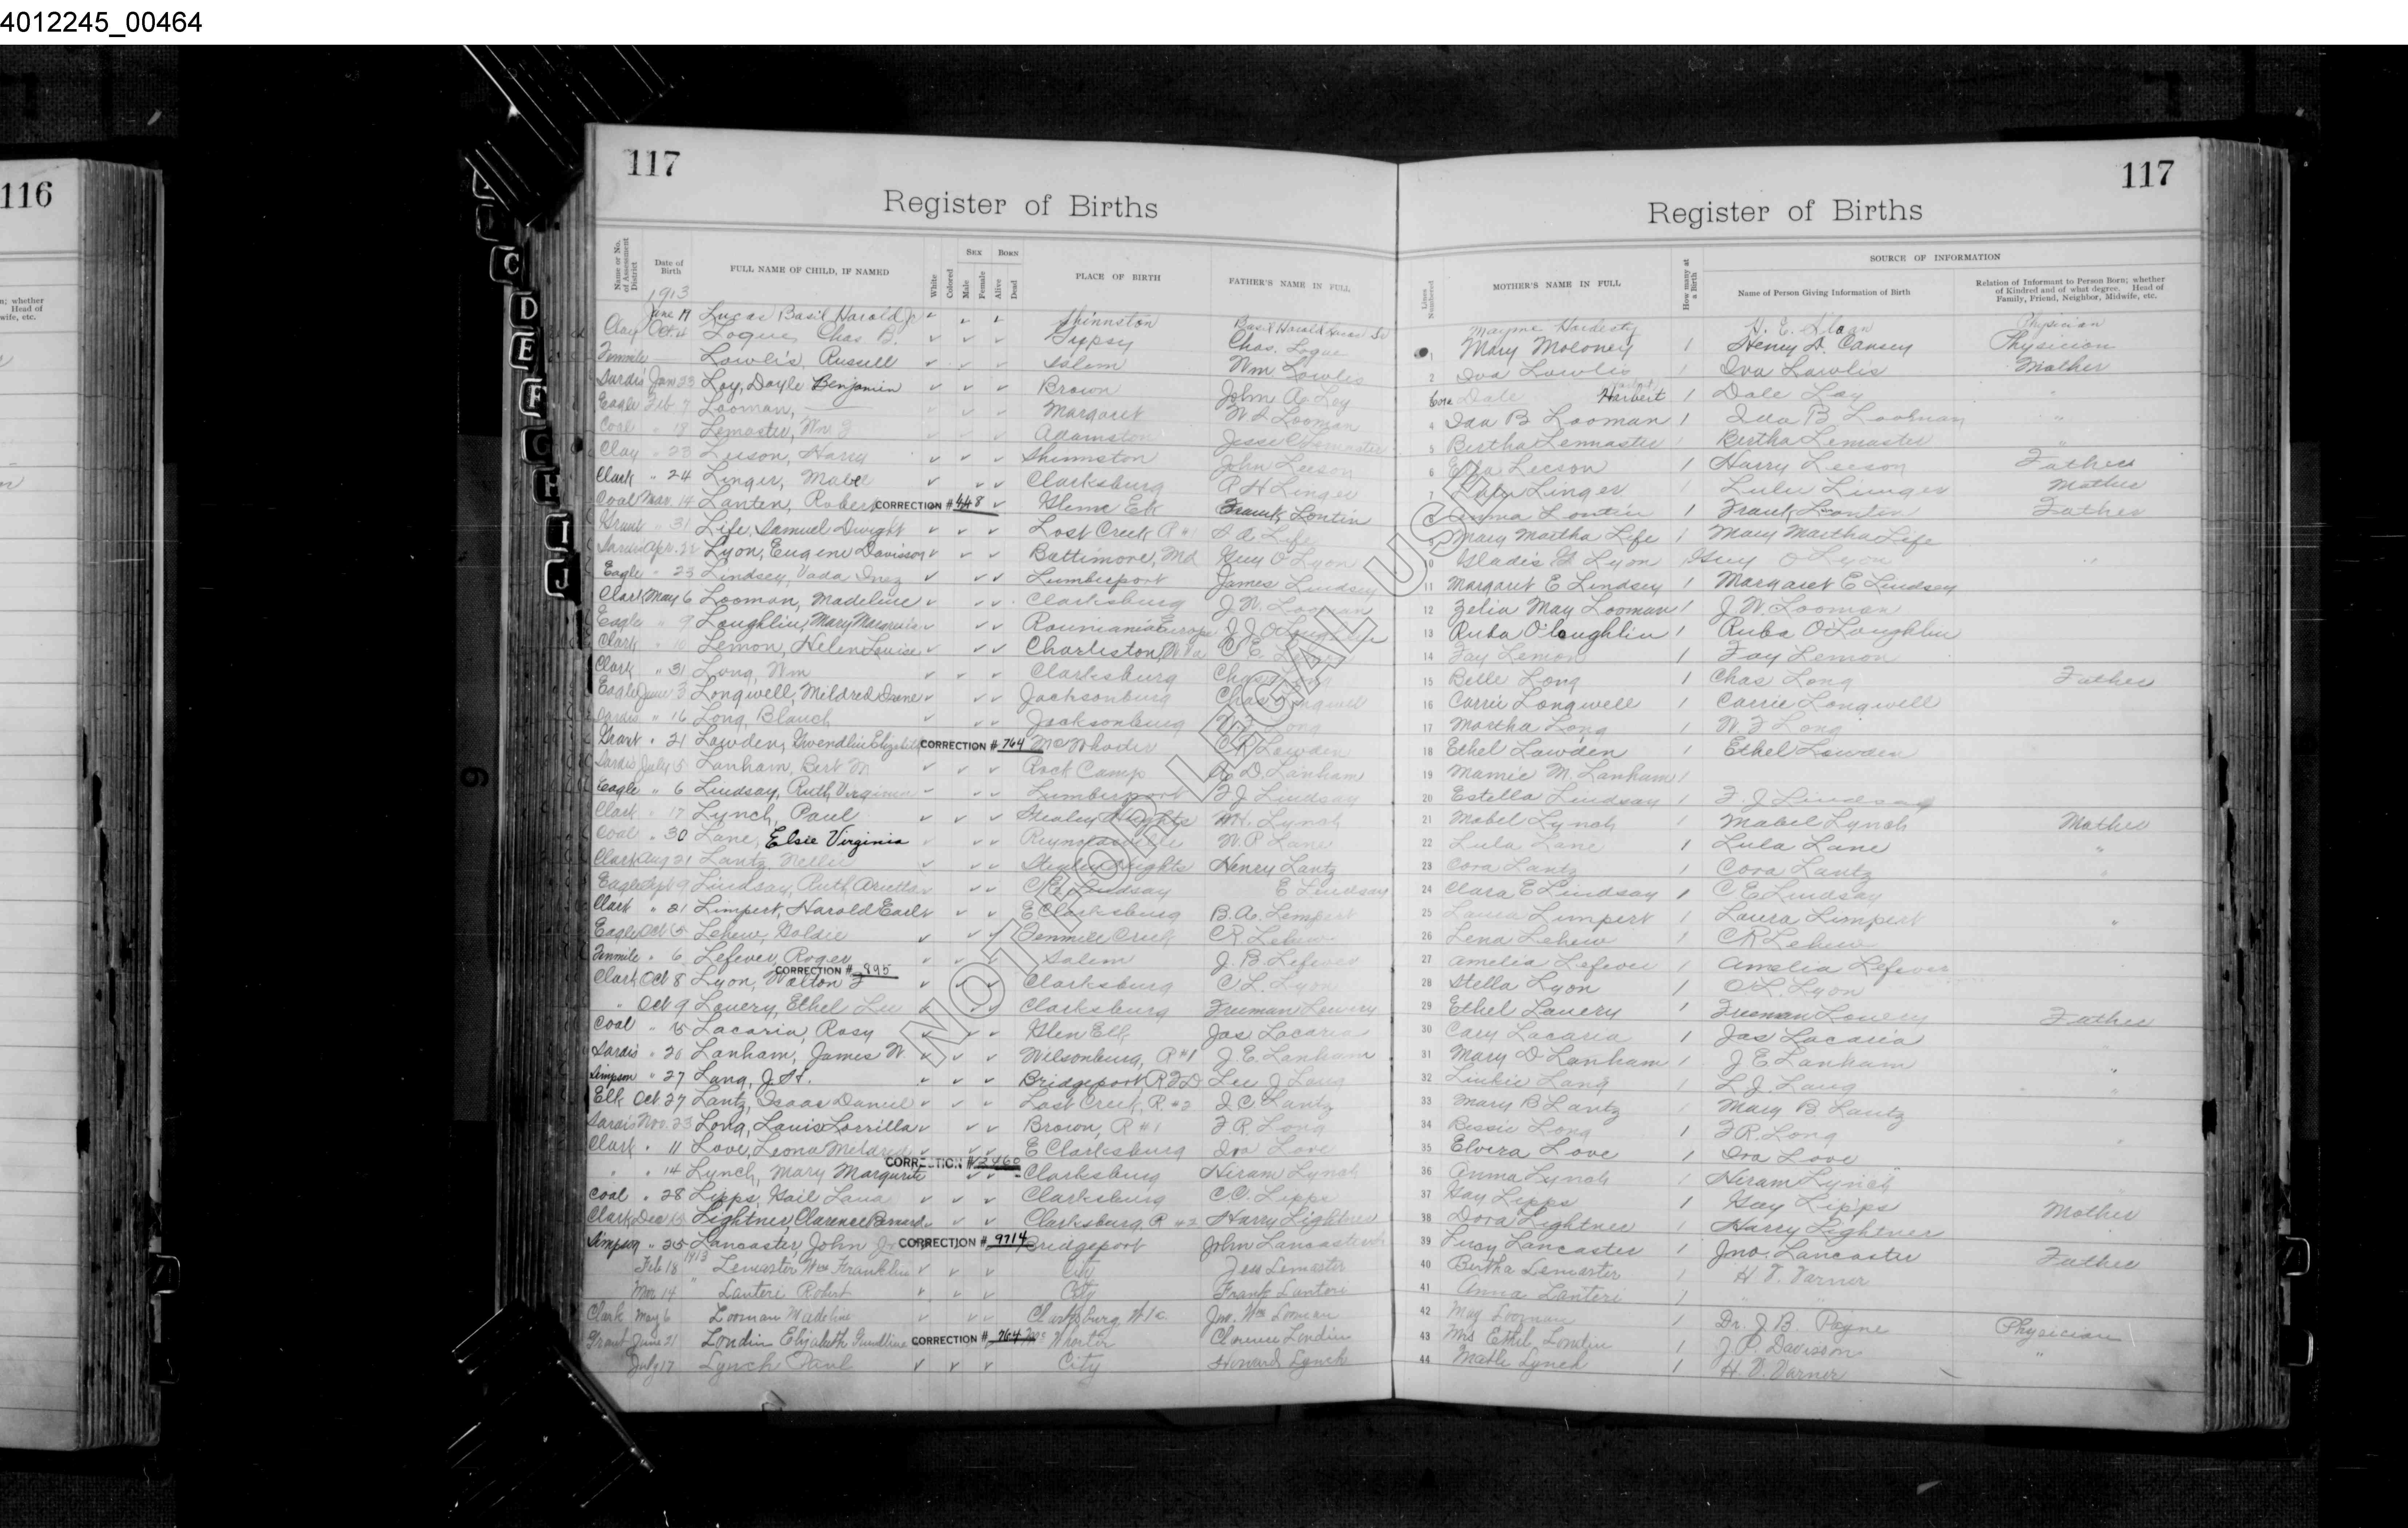 4012245_00464
116
117
117
Register of Births
Register of Births
Name or No. of Assessment District
Date of Birth
FULL NAME OF CHILD, IF NAMED
White
Colored
SEX
Male
Female
BORN
Alive
Dead
PLACE OF BIRTH
FATHER'S NAME IN FULL
Lines Numbered
MOTHER'S NAME IN FULL
How many at a Birth
SOURCE OF INFORMATION
Name of Person Giving Information of Birth
Relation of Informant to Person Born; whether of Kindred and of what degree. Head of Family, Friend, Neighbor, Midwife, etc.
1913
June 17 Lucas Basil Harold Jr Shinnston Basil Harold Lucas Sr Mayme Hardesty H. E. Sloan Physician
Clay Oct Logue, Chas B. Gypsy Chas. Logue 1 Mary Moloney 1 Henry Causey Physician
Tenmile Lowlis, Russell Salem Wm Lowlis 2 Iva Lowlis 1 Iva Lowlis Mother
Sardis Jan 23 Loy, Doyle Benjamin Brown John A. Loy Cora Dale Harbert 1 Dale Loy "
Eagle Feb 7 Looman, Margaret W. I. Looman 4 Ida B Looman 1 Ida B Looman "
Coal " 18 Lemaster, Wm F Adamston Jesse Lemaster 5 Bertha Lemaster 1 Bertha Lemaster "
Clay " 23 Leeson, Harry Shinnston John Leeson 6 Leeson 1 Harry Leeson Father
Clark " 24 Linger, Mabel Clarksburg P H Linger 7 Lulu Linger 1 Lulu Linger Mother
Coal Mar. 14 Lanten, Robert CORRECTION # 448 Glenn Elk Frank Lontin Lontin 1 Frank Lontin Father
Grant " 31 Life, Samuel Dwight Lost Creek R #1 S A Life 9 Mary Martha Life 1 Mary Martha Life
Sardis Apr. 22 Lyon, Eugene Davisson Baltimore, Md Guy O Lyon Gladis G Lyon 1 Guy O Lyon "
Eagle " 23 Lindsey, Vada Inez Lumberport James Lindsey 11 Margaret E Lindsey 1 Margaret E Lindsey
Clark May 6 Looman, Madeline Clarksburg J. W. Looman 12 Zelia May Looman 1 J W. Looman
Eagle " 9 Loughlin, Mary Roumania Europe J. J. O'Loughlin 13 Ruba O'Loughlin 1 Ruba O'Loughlin
Clark " 10 Lemon, Helen Louise Charleston, W Va C. E. Lemon 14 Fay Lemon 1 Fay Lemon
Clark " 31 Long, Wm Clarksburg Chas Long 15 Belle Long 1 Chas Long Father
Eagle June 3 Longwell, Mildred June Jacksonburg Chas Longwell 16 Carrie Longwell 1 Carrie Longwell
Sardis " 16 Long, Blanch Jacksonburg W F Long 17 Martha Long 1 W F Long
Grant " 21 Lowden, Gwendline Elizabeth CORRECTION # 764 C R Lowden 18 Ethel Lowden 1 Ethel Lowden
Sardis July 5 Lanham, Bert M Rock Camp A. D. Lanham 19 Mamie M. Lanham 1
Eagle " 6 Lindsay, Ruth Virginia Lumberport F J Lindsay 20 Estella Lindsay 1 F J Lindsay
Clark " 17 Lynch, Paul Stealey Heights Lynch 21 Mabel Lynch 1 Mabel Lynch Mother
Coal " 30 Lane, Elsie Virginia Reynoldsville W. P Lane 22 Lula Lane 1 Lula Lane "
Clark Aug 21 Lantz, Nellie Stealey Heights Henry Lantz 23 Cora Lantz 1 Cora Lantz "
Eagle Sept 9 Lindsay, Ruth Aretta C E Lindsay E Lindsay 24 Clara E Lindsay 1 C E Lindsay
Clark " 21 Limpert, Harold Earl E Clarksburg B. A. Limpert 25 Laura Limpert 1 Laura Limpert "
Eagle Oct 5 Lehew, Goldie Tenmile Creek C R Lehew 26 Lena Lehew 1 C R Lehew
Tenmile " 6 Lefever, Roger Salem J. B. Lefever 27 Amelia Lefever 1 Amelia Lefever
CORRECTION # 895
Clark Oct 8 Lyon, Walton F Clarksburg C L. Lyon 28 Stella Lyon 1 C L. Lyon
" Oct 9 Lowery, Ethel Lee Clarksburg Freeman Lowery 29 Ethel Lowery 1 Freeman Lowery Father
Coal " 15 Lacaria, Rosy Glen Elk Jas Lacaria 30 Cary Lacaria 1 Jas Lacaria
Sardis " 20 Lanham, James W. Wilsonburg, R #1 J. E. Lanham 31 Mary D Lanham 1 J E Lanham "
Simpson " 27 Lang, J. H. Bridgeport R F D Lee J Lang 32 Linkie Lang 1 L J. Lang "
Elk Oct 27 Lantz, Isaac Daniel Lost Creek, R #2 I C Lantz 33 Mary B Lantz 1 Mary B Lantz
Sardis Nov. 23 Long, Louis Lorrilla Brown, R #1 F. R. Long 34 Bessie Long 1 F R. Long "
Clark " 11 Love, Leona Mildred E Clarksburg Ira Love 35 Elvira Love 1 Ira Love
CORRECTION #
" " 14 Lynch, Mary Margurite Clarksburg Hiram Lynch 36 Anna Lynch 1 Hiram Lynch
Coal " 28 Lipps, Gail Lana Clarksburg C. O. Lipps 37 Gay Lipps 1 Gay Lipps Mother
Clark Dec 13 Lightner, Clarence Bernard Clarksburg R #2 Harry Lightner 38 Dora Lightner 1 Harry Lightner
Simpson " 25 Lancaster, John Jr CORRECTION # 9714 Bridgeport John Lancaster 39 Lucy Lancaster 1 Jno. Lancaster Father
1913
Feb 18 Lemaster Wm Franklin City Jess Lemaster 40 Bertha Lemaster 1 H. V. Varner
Mar 14 " Lanteri Robert City Frank Lanteri 41 Anna Lanteri 1 "
Clark May 6 Looman Madeline Clarksburg W Va. Jno. Wm Looman 42 May Looman 1 Dr. J. B. Payne Physician
Grant June 21 Londin Elizabeth Gundline CORRECTION # 764 Mc Whorter Clarence Londin 43 Mrs Ethel Londin 1 J. P. Davisson "
July 17 Lynch Paul City Howard Lynch 44 Lynch 1 H. V. Varner
NOT FOR LEGAL USE
C
D
E
F
G
H
I
J